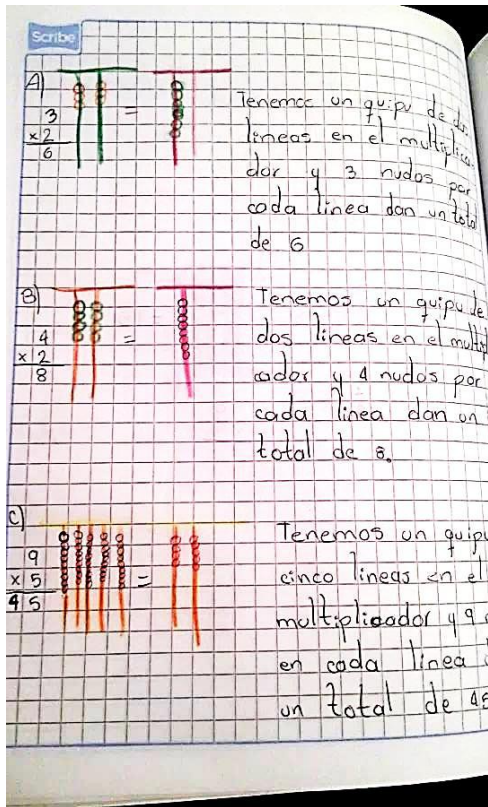 Scribe
A)
3
x2
6
=
Tenemos un quipu de dos
lineas en el multiplica
dor y 3 nudos por
cada linea dan un total
de 6
B)
4
x2
8
=
Tenemos un quipu de
dos lineas en el multipli
cador y 4 nudos por
cada linea dan un
total de 8.
C)
9
x5
45
=
Tenemos un quipu
cinco lineas en el
multiplicador y 9
en cada linea
un total de 45